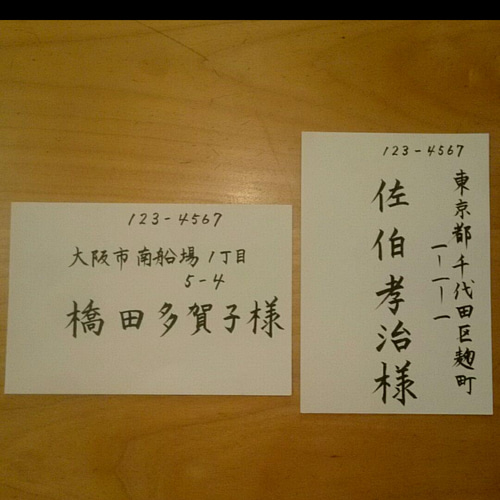 123-4567
大阪市南船場1丁目
5-4
橋田多賀子様
123-4567
東京都千代田区麹町
一-一-一
佐伯孝治様